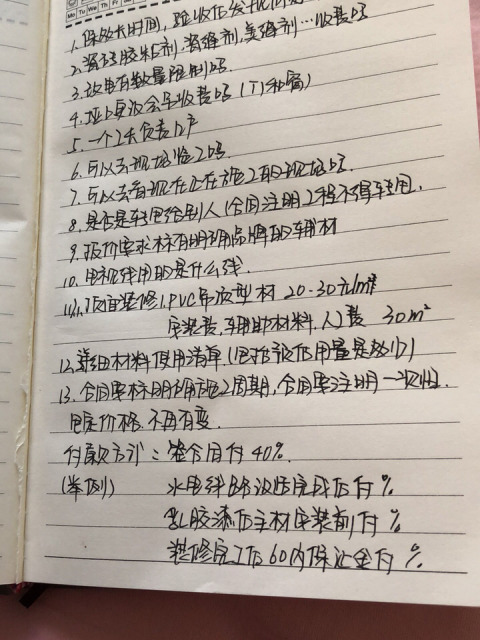 Mo Tu We Th Fr
1. 保修长时间, 验收后发现
2. 瓷砖胶粘剂, 填缝剂, 美缝剂…收费吗
3. 放电有数量限制吗
4. 垃圾会单收费吗 (门和窗)
5. 一个工长负责几户
6. 可以去现场监工吗
7. 可以去看现在正在施工的现场吗
8. 是否是转包给别人 (合同注明工程不得转包.
9. 报价要求标有明确品牌的辅材
10. 电视线用的是什么线.
11. 顶面装修1. PVC吊顶型材 20-30元/m²
安装费, 辅助材料, 人工费 30m²
12. 详细材料使用清单, (包括预估用量是多少)
13. 合同要标明确施工周期, 合同要注明一次性.
包定价格. 不再有变.
付款方式: 签合同付40%.
(举例) 水电线路改造完成后付 %
乳胶漆后主材安装前付 %
装修完工后60内保证金付 %